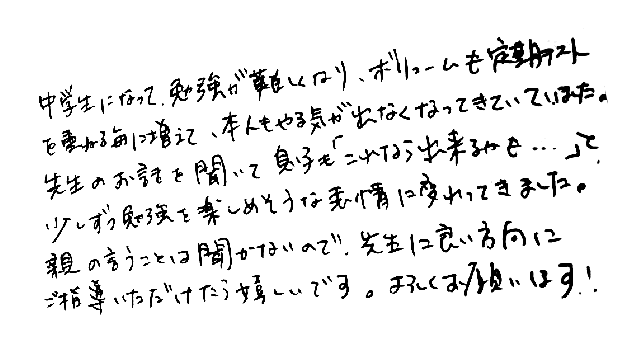 中学生になって、勉強が難しくなり、ボリュームも定期テスト
を重ねる毎に増えて、本人もやる気が出なくなってきていていました。
先生のお話を聞いて息子も「これなら出来るかも…」と
少しずつ勉強を楽しめそうな表情に変わってきました。
親の言うことは聞かないので、先生に良い方向に
ご指導いただけたら嬉しいです。よろしくお願いします！